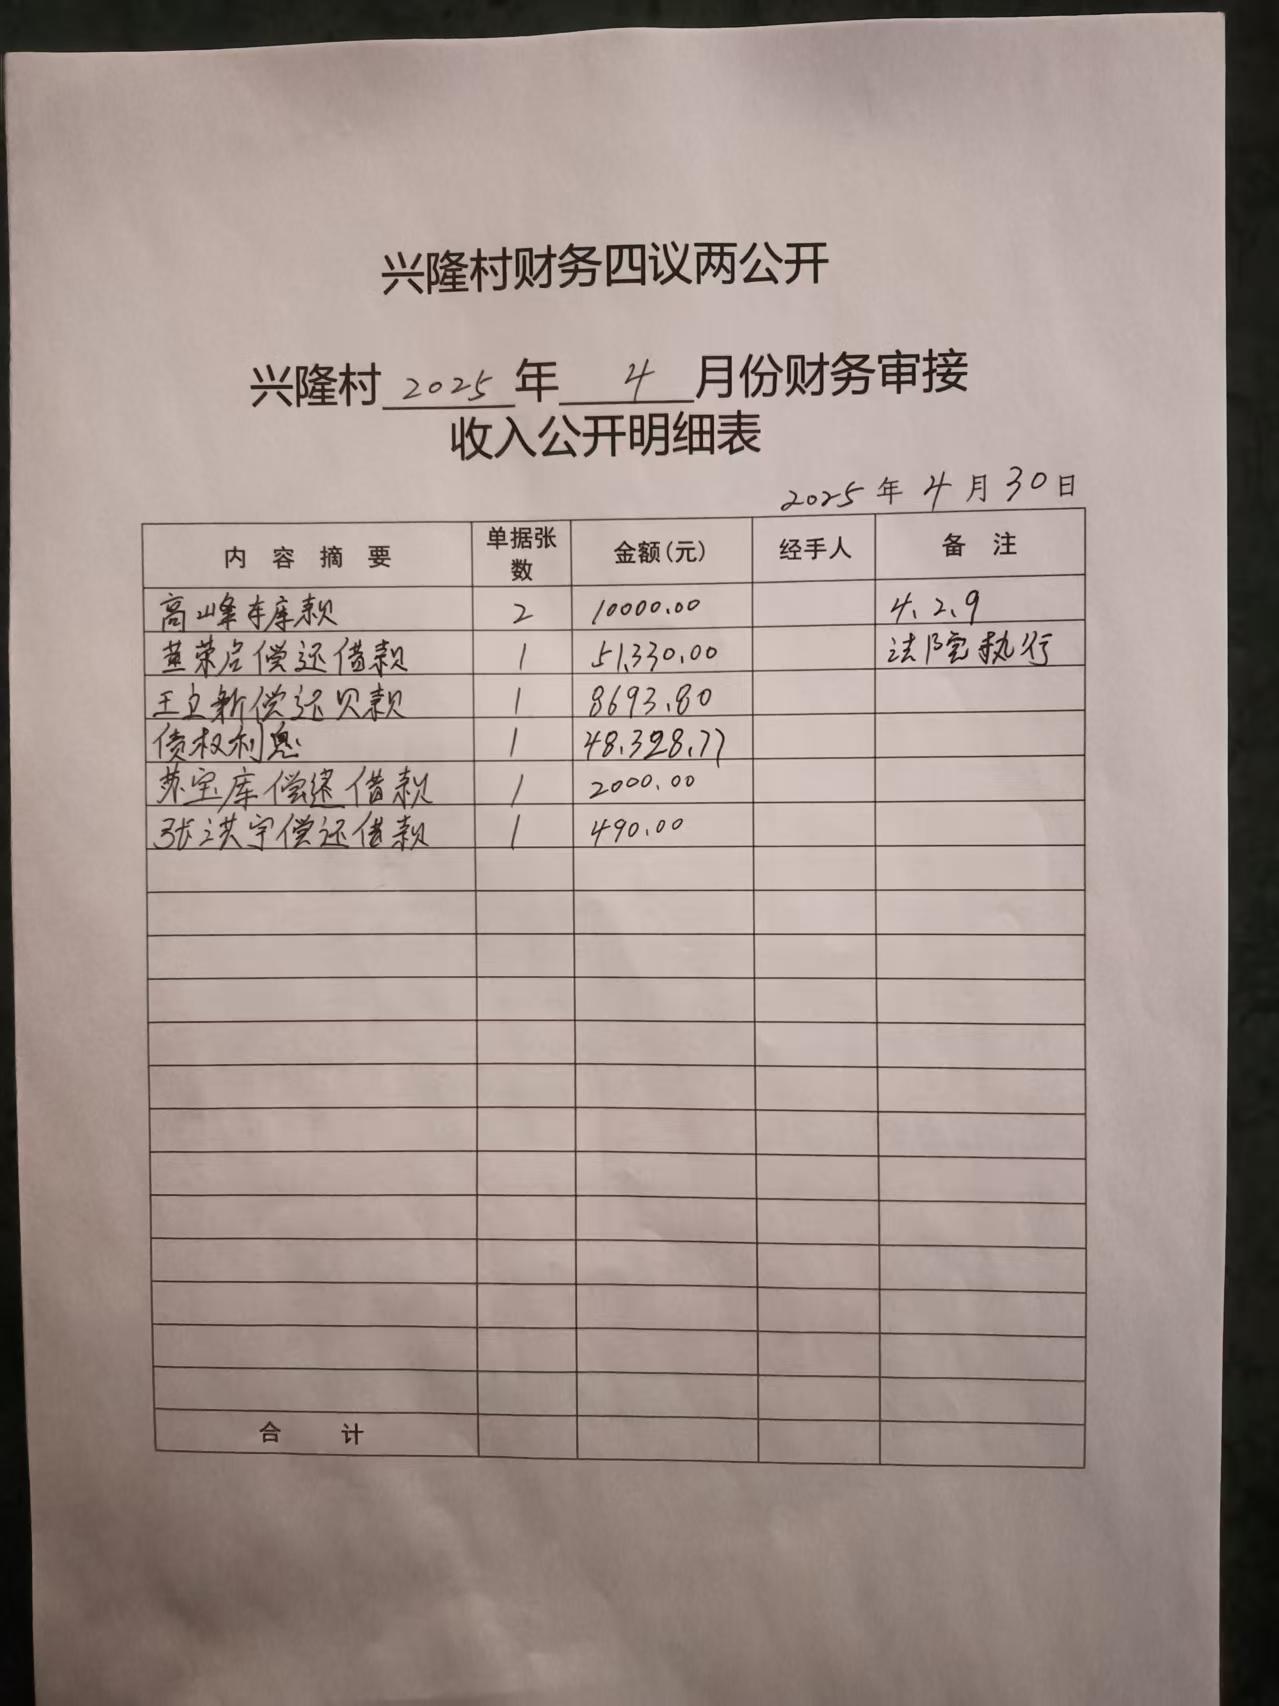 兴隆村财务四议两公开
兴隆村 2025 年 4 月份财务审接
收入公开明细表
2025 年 4 月 30 日
内 容 摘 要 单据张数 金额(元) 经手人 备 注
高山峰车库款 2 10000.00 4.2.9
荣启偿还借款 1 51,330.00 法院执行
王立新偿还贝款 1 8693.80
债权利息 1 48,328.77
苏宝库偿还借款 1 2000.00
张洪宇偿还借款 1 490.00
合 计